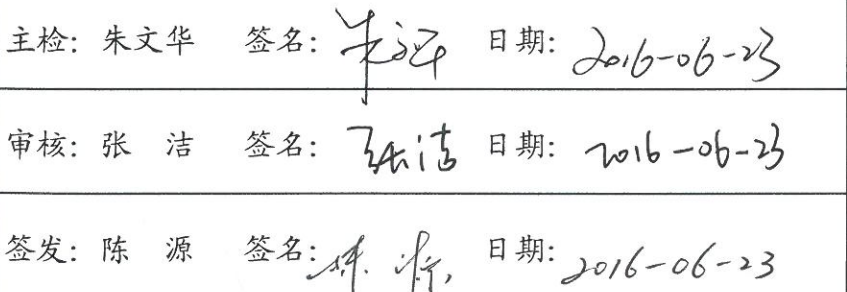 主检: 朱文华 签名: 朱文华 日期: 2016-06-23
审核: 张 洁 签名: 张洁 日期: 2016-06-23
签发: 陈 源 签名: 陈源 日期: 2016-06-23